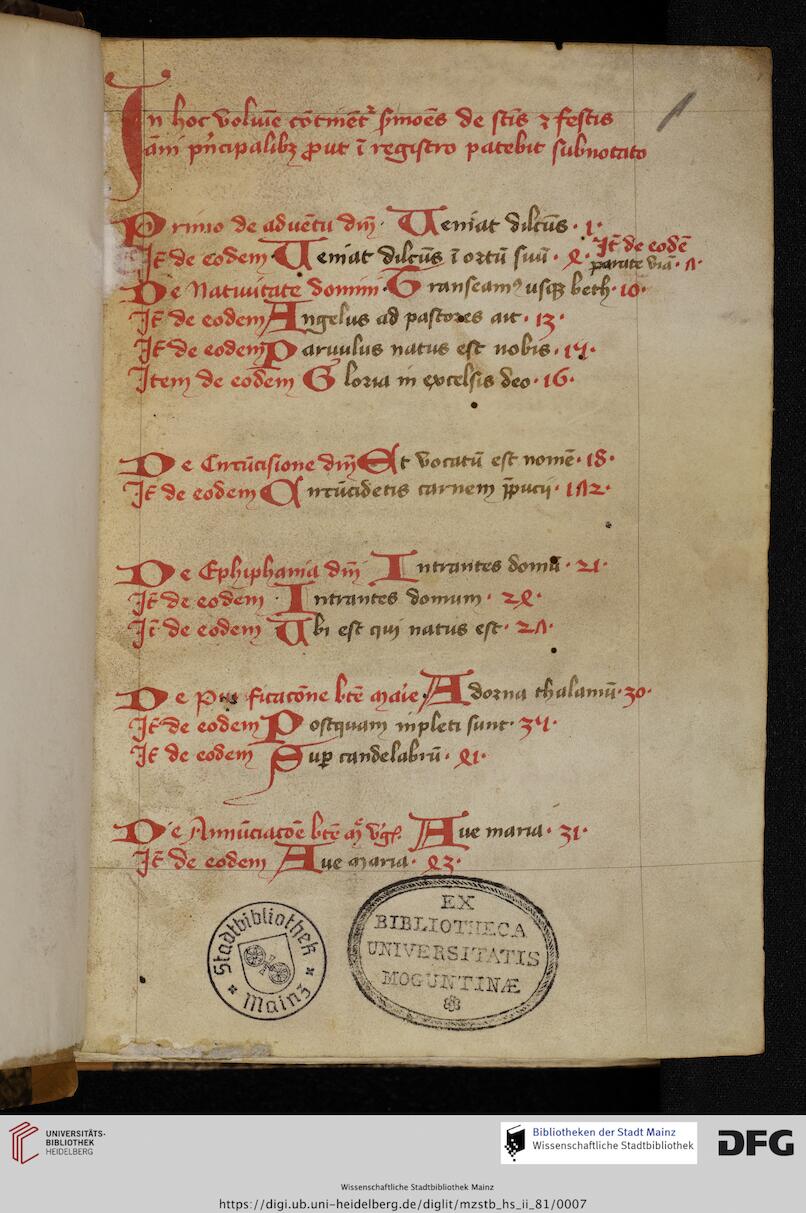 In hoc volūīe cōtinēt᷒ ẜmoēs de sctīs ⁊ festis
āni pⁿcipalibꝫ ꝓut ī registro patebit subnotato
1
Primo de aduētu dn̄i · Veniat dilcūs · 1 ·
It̄ de eodē
It̄ de eodem · Veniat dilcūs ī ortū suū · 4 ·
parate viā · 7 ·
De Natiuitate domini · Transeamꝰ usqꝫ beth · 10 ·
It̄ de eodem Angelus ad pastores ait · 13 ·
It̄ de eodem Paruulus natus est nobis · 14 ·
Item de eodem Gloria in excelsis deo · 16 ·
De Circūcisione dn̄i Et vocatū est nomē · 18 ·
It̄ de eodem Circūcidetis carnem p̄pucij ·
De Ephiphania dn̄i Intrantes domū · 21 ·
It̄ de eodem · Intrantes domum · 24 ·
It̄ de eodem Vbi est qui natus est · 27 ·
De Purificatōne btē Marie · Adorna thalamū · 30 ·
It̄ de eodem Postquam inpleti sunt · 34 ·
It̄ de eodem Suꝑ candelabrū · 41 ·
De Annūciatōe btē M vgīs Aue maria · 31 ·
It̄ de eodem Aue maria · 43 ·
Stadtbibliothek
Mainz
EX
BIBLIOTHECA
UNIVERSITATIS
MOGUNTINÆ
UNIVERSITÄTS-
BIBLIOTHEK
HEIDELBERG
Bibliotheken der Stadt Mainz
Wissenschaftliche Stadtbibliothek
DFG
Wissenschaftliche Stadtbibliothek Mainz
https://digi.ub.uni-heidelberg.de/diglit/mzstb_hs_ii_81/0007